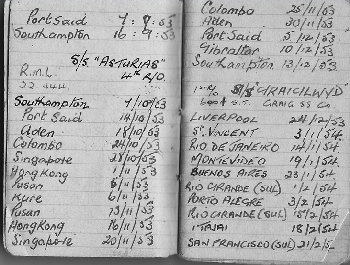 Port Said 7:9:53
Southampton 16:9:53
S/S "ASTURIAS"
R.M.L. 4th R/O.
22,444
Southampton 7/10/53
Port Said 14/10/53
Aden 18/10/53
Colombo 24/10/53
Singapore 28/10/53
Hong Kong 1/11/53
Pusan 5/11/53
Kure 6/11/53
Pusan 13/11/53
Hong Kong 16/11/53
Singapore 20/11/53
Colombo 25/11/53
Aden 30/11/53
Port Said 5/12/53
Gibraltar 10/12/53
Southampton 13/12/53
S/S "GRAIGLWYD"
GRAIG SS Co
LIVERPOOL 24/12/53
St. VINCENT 3/1/54
RIO DE JANEIRO 14/1/54
MONTEVIDEO 19/1/54
BUENOS AIRES 23/1/54
RIO GRANDE (SUL) 1/2/54
PORTO ALEGRE 3/2/54
RIO GRANDE (SUL) 15/2/54
ITAJAI 18/2/54
SAN FRANCISCO (SUL) 21/2/54